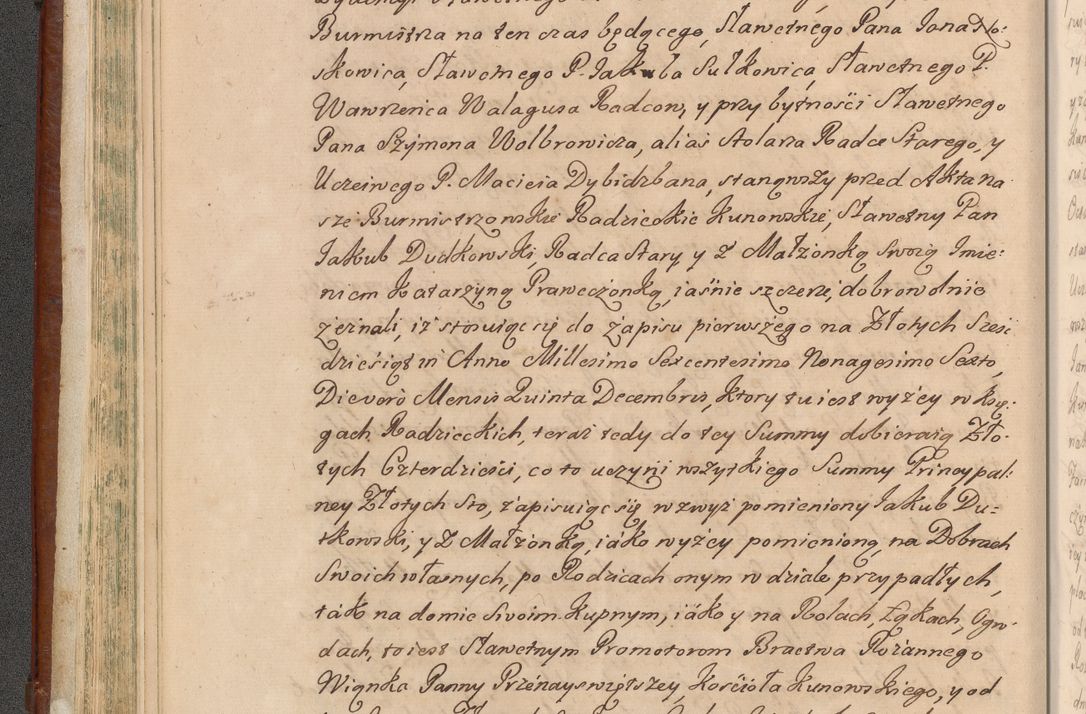 Burmistrza na ten czas będącego, Sławetnego Pana Jana No-
skowica, Sławetnego P. Jakuba Sułkowica, Sławetnego P.
Wawrzenca Walagusa Radcow, y przy bytności Sławetnego
Pana Szymona Wolbrowicza, alias Stolarza Radce Starego, y
Uczciwego P. Macieia Dybidzbana, stanąwszy przed Akta na
sze Burmistrzowskie Radzieckie Kunowskie, Sławetny Pan
Jakub Dudkowski, Radca Stary y z Małżonką Swoią Imie-
niem Katarzyną Praweczonką, iaśnie szczerze, dobrowolnie
zeznali, iż stosuiąc się do zapisu pierwszego na Złotych Sześć
dziesiąt in Anno Millesimo Sexcentesimo Nonagesimo Sexto,
Die vero Mensis Quinta Decembris, Ktory tu iest wyżey w Xię-
gach Radzieckich, teraz tedy do tey Summy dobieraią Zło-
tych Czterdzieści, co to uczyni wszystkiego Summy Princypal-
ney Złotych Sto, zapisuiąc się wzwyż pomieniony Jakub Du-
tkowski, y z Małżonką, iáko wyżey pomienioną, na Dobrach
Swoich własnych, po Rodzicach onym w dziale przypadłych,
ták na domie Swoim Kupnym, iáko y na Rolach, Łąkach, Ogro-
dach, to iest Sławetnym Promotorom Bractwa Rożannego
Wiąnka Panny Przenayswiętszey, Kościoła Kunowskiego, y od